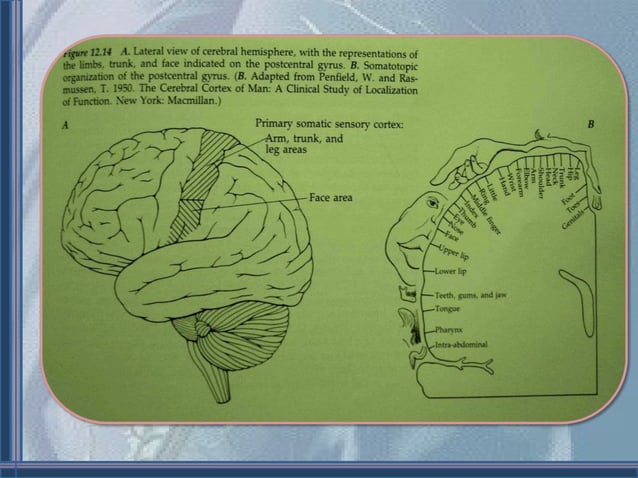 Figure 12.14 A. Lateral view of cerebral hemisphere, with the representations of
the limbs, trunk, and face indicated on the postcentral gyrus. B. Somatotopic
organization of the postcentral gyrus. (B. Adapted from Penfield, W. and Ras-
mussen, T. 1950. The Cerebral Cortex of Man: A Clinical Study of Localization
of Function. New York: Macmillan.)
A
Primary somatic sensory cortex:
Arm, trunk, and
leg areas
Face area
B
Leg
Hip
Trunk
Neck
Head
Shoulder
Arm
Elbow
Forearm
Wrist
Hand
Little
Ring
Middle finger
Index
Thumb
Eye
Nose
Face
Upper lip
Lower lip
Teeth, gums, and jaw
Tongue
Pharynx
Intra-abdominal
Foot
Toes
Genitals